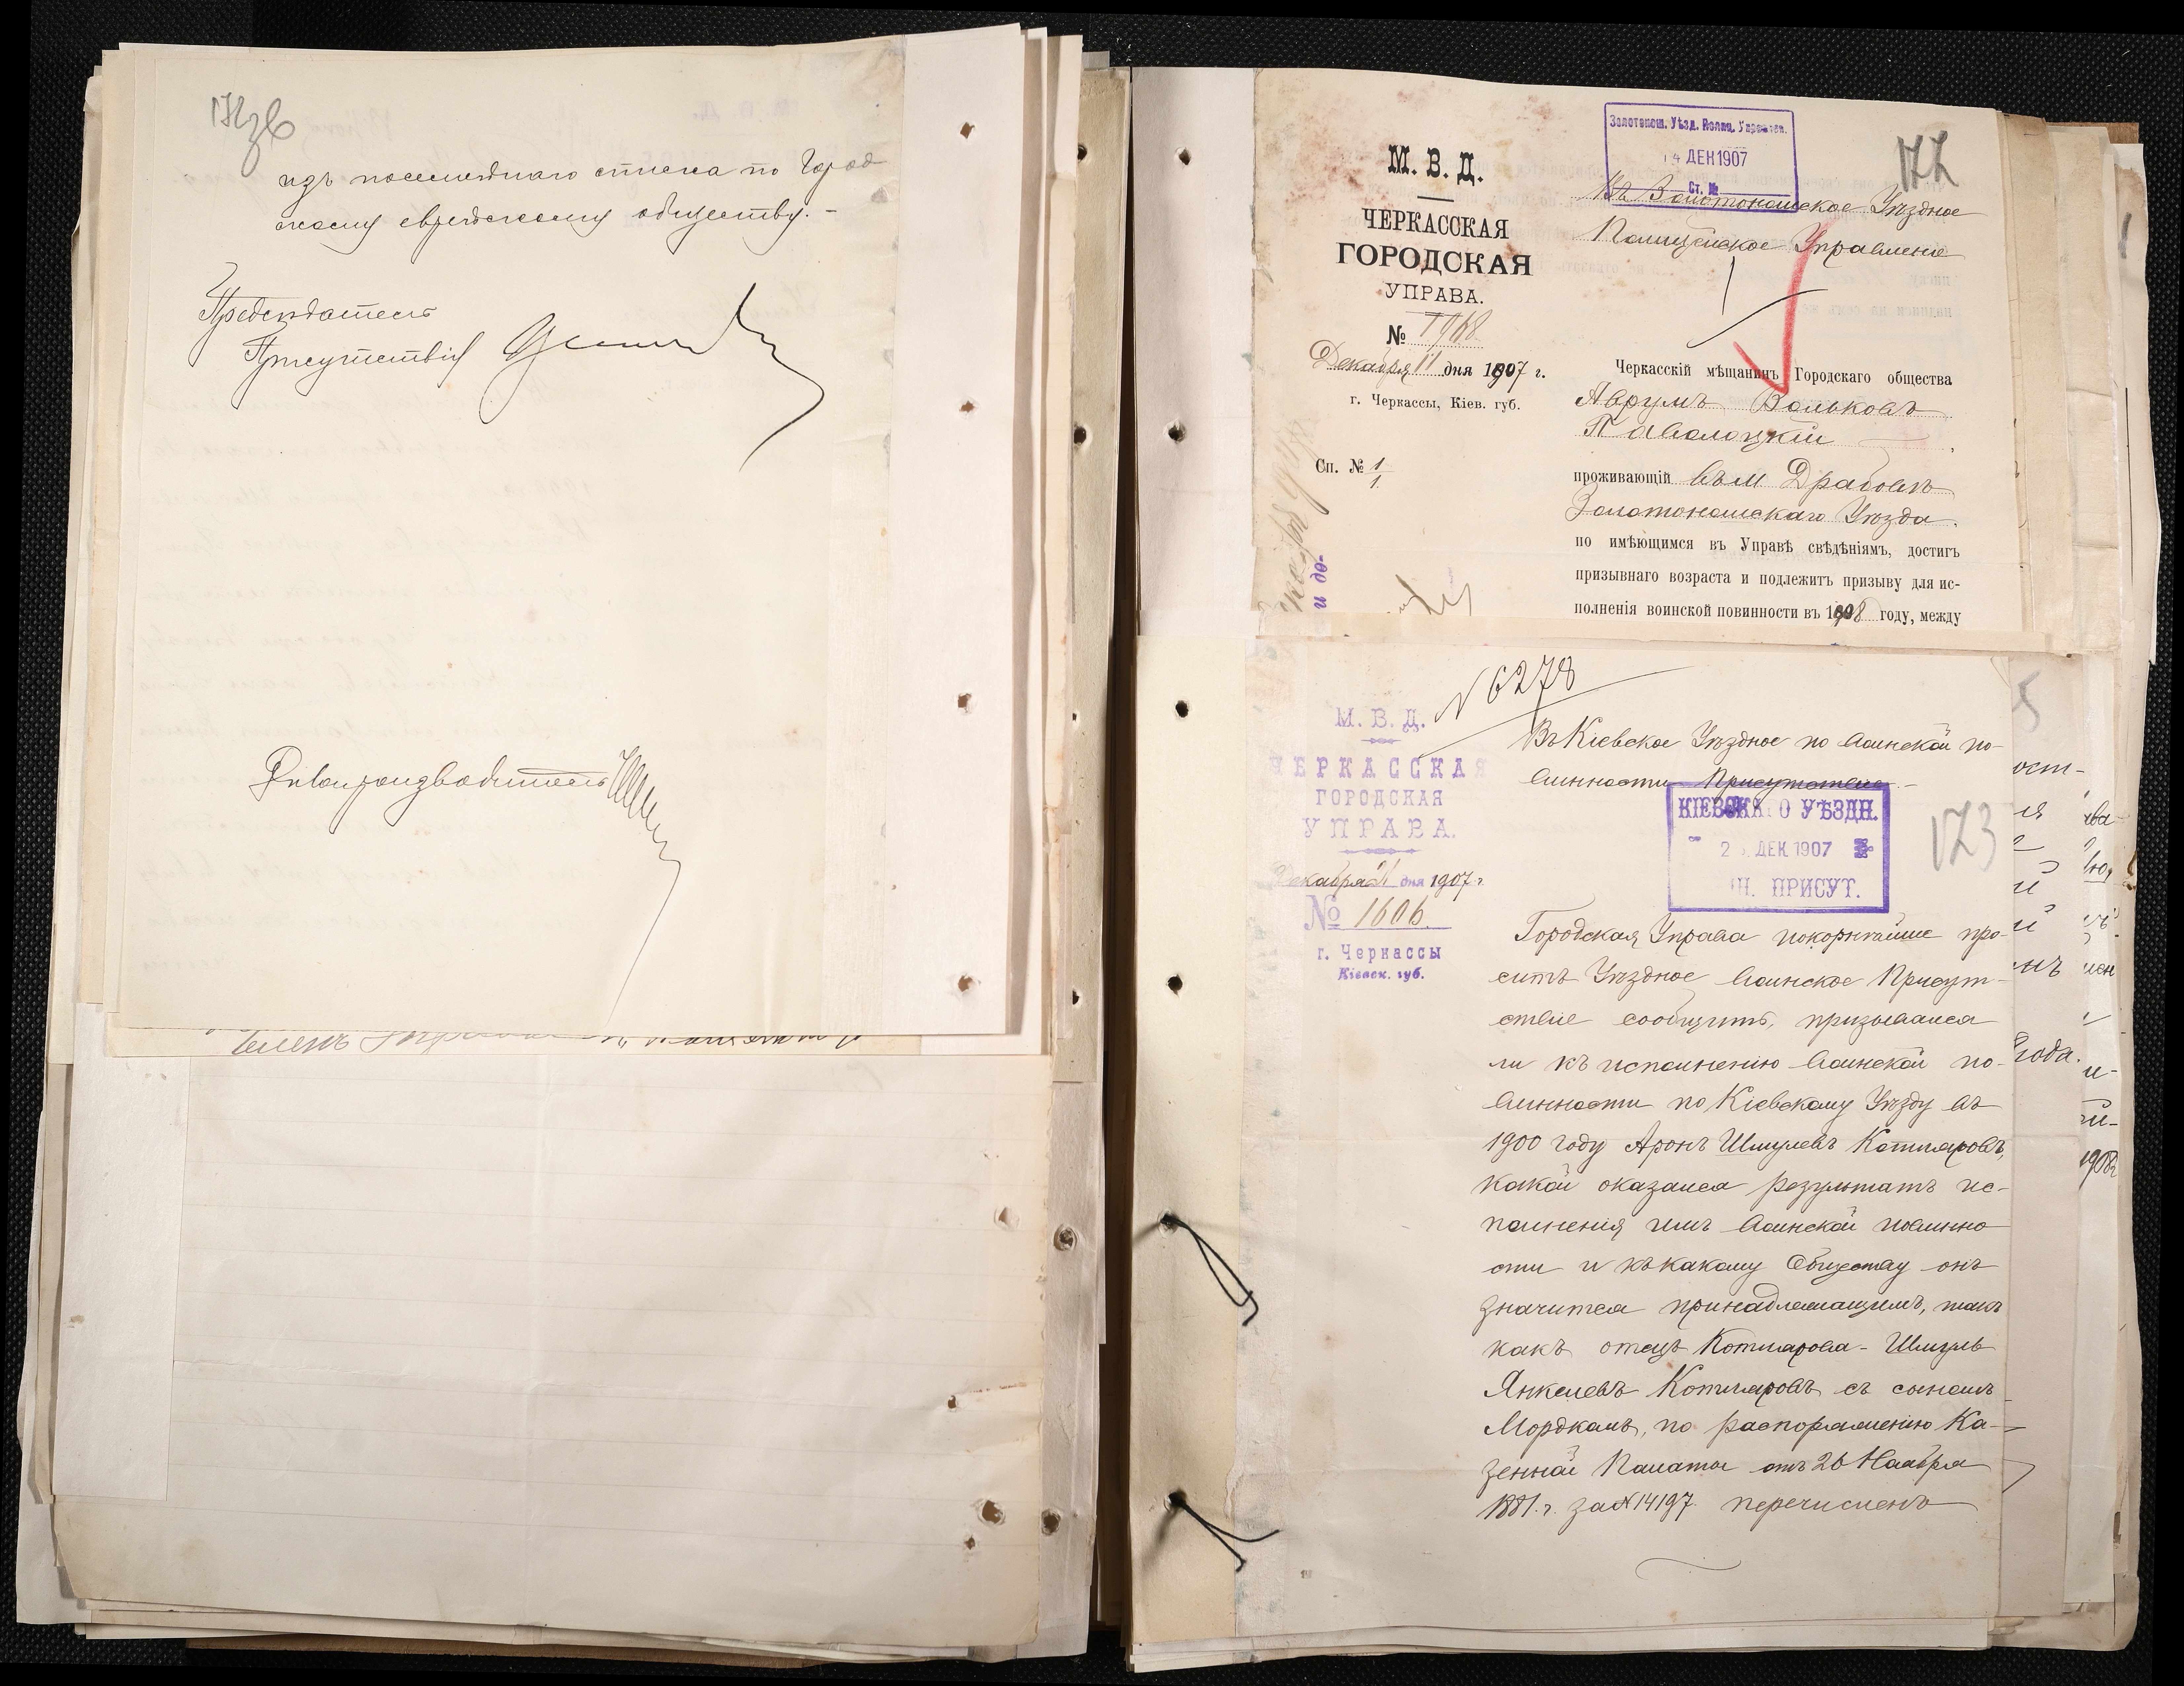 171зв
изъ посемейнаго списка по Город
скому еврейскому обществу. -
Председатель
Присутствія
Делопроизводитель
Членъ
172
Золотонош. Уѣзд. Полиц. Управлен.
14 ДЕК 1907
Ст. №
М. В. Д.
ЧЕРКАССКАЯ
ГОРОДСКАЯ
УПРАВА.
№ 7968
Декабря 11 дня 1907 г.
г. Черкассы, Кіев. губ.
Сп. № 1/1
и до-
Въ Золотоношское Уѣздное
Полицейское Управленіе
Черкасскій мѣщанинъ Городскаго общества
Аврумъ Вольковъ
Паволоцкій
проживающій въ м Драбовѣ
Золотоношскаго Уѣзда.
по имѣющимся въ Управѣ свѣдѣніямъ, достигъ
призывнаго возраста и подлежитъ призыву для ис-
полненія воинской повинности въ 1908 году, между
N 6278
М. В. Д.
ЧЕРКАССКАЯ
ГОРОДСКАЯ
УПРАВА.
Декабря 21 дня 1907 г.
№ 1606.
г. Черкассы
Кіевск. губ.
Въ Кіевское Уѣздное по воинской по-
винности Присутствіе. -
КІЕВСКАГО УѢЗДН.
2 ДЕК 1907
Н. ПРИСУТ.
173
Городская Управа покорнѣйше про-
ситъ Уѣздное Воинское Присут-
ствіе сообщить, призывался
ли къ исполненію воинской по-
винности по Кіевскому Уѣзду въ
1900 году Аронъ Шмулевъ Котляровъ,
какой оказался результатъ ис-
полненія имъ воинской повинно
сти и къ какому Обществу онъ
значится принадлежащимъ, такъ
какъ отецъ Котлярова - Шмуль
Янкелевъ Котляровъ съ сыномъ
Мордкомъ, по распоряженію Ка-
зенной Палаты отъ 26 Ноября
1881 г. за N 14197 перечисленъ
5
ост-
года.
1908